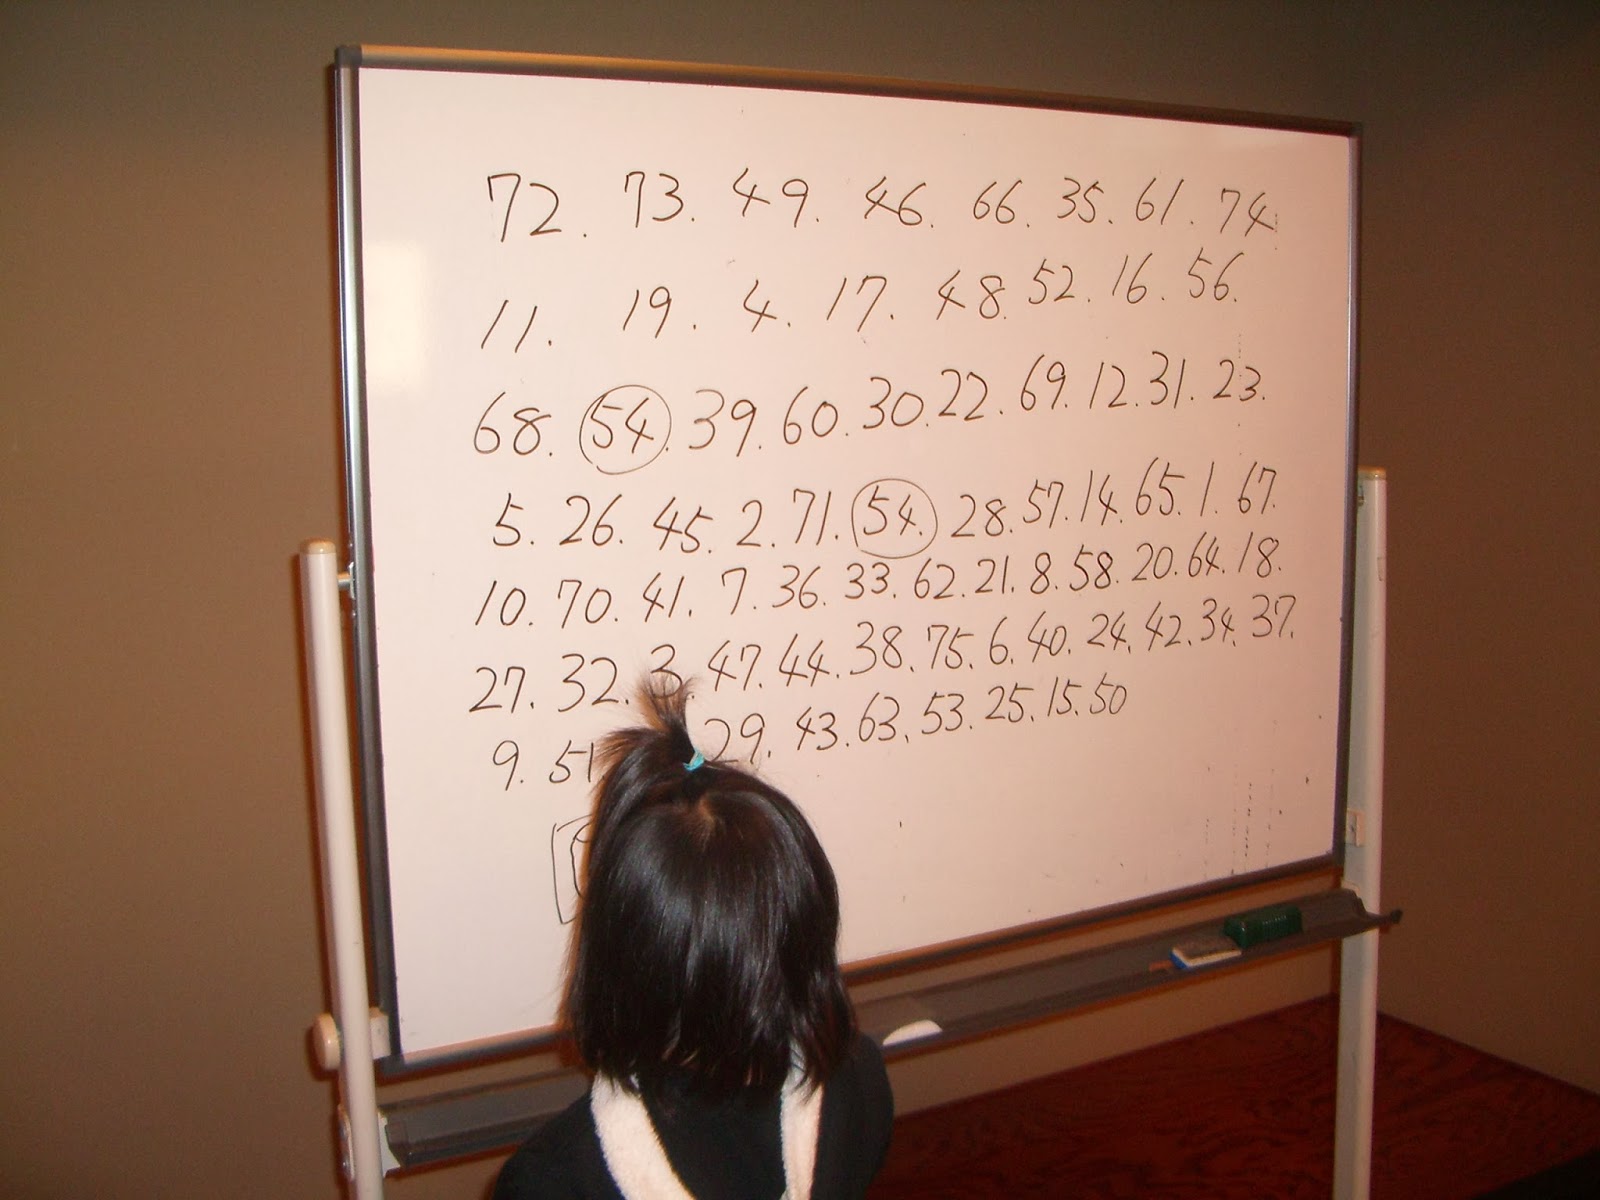 72. 73. 49. 46. 66. 35. 61. 74
11. 19. 4. 17. 48. 52. 16. 56.
68. 54. 39. 60. 30. 22. 69. 12. 31. 23.
5. 26. 45. 2. 71. 54. 28. 57. 14. 65. 1. 67.
10. 70. 41. 7. 36. 33. 62. 21. 8. 58. 20. 64. 18.
27. 32. 3. 47. 44. 38. 75. 6. 40. 24. 42. 34. 37.
9. 51. 29. 43. 63. 53. 25. 15. 50